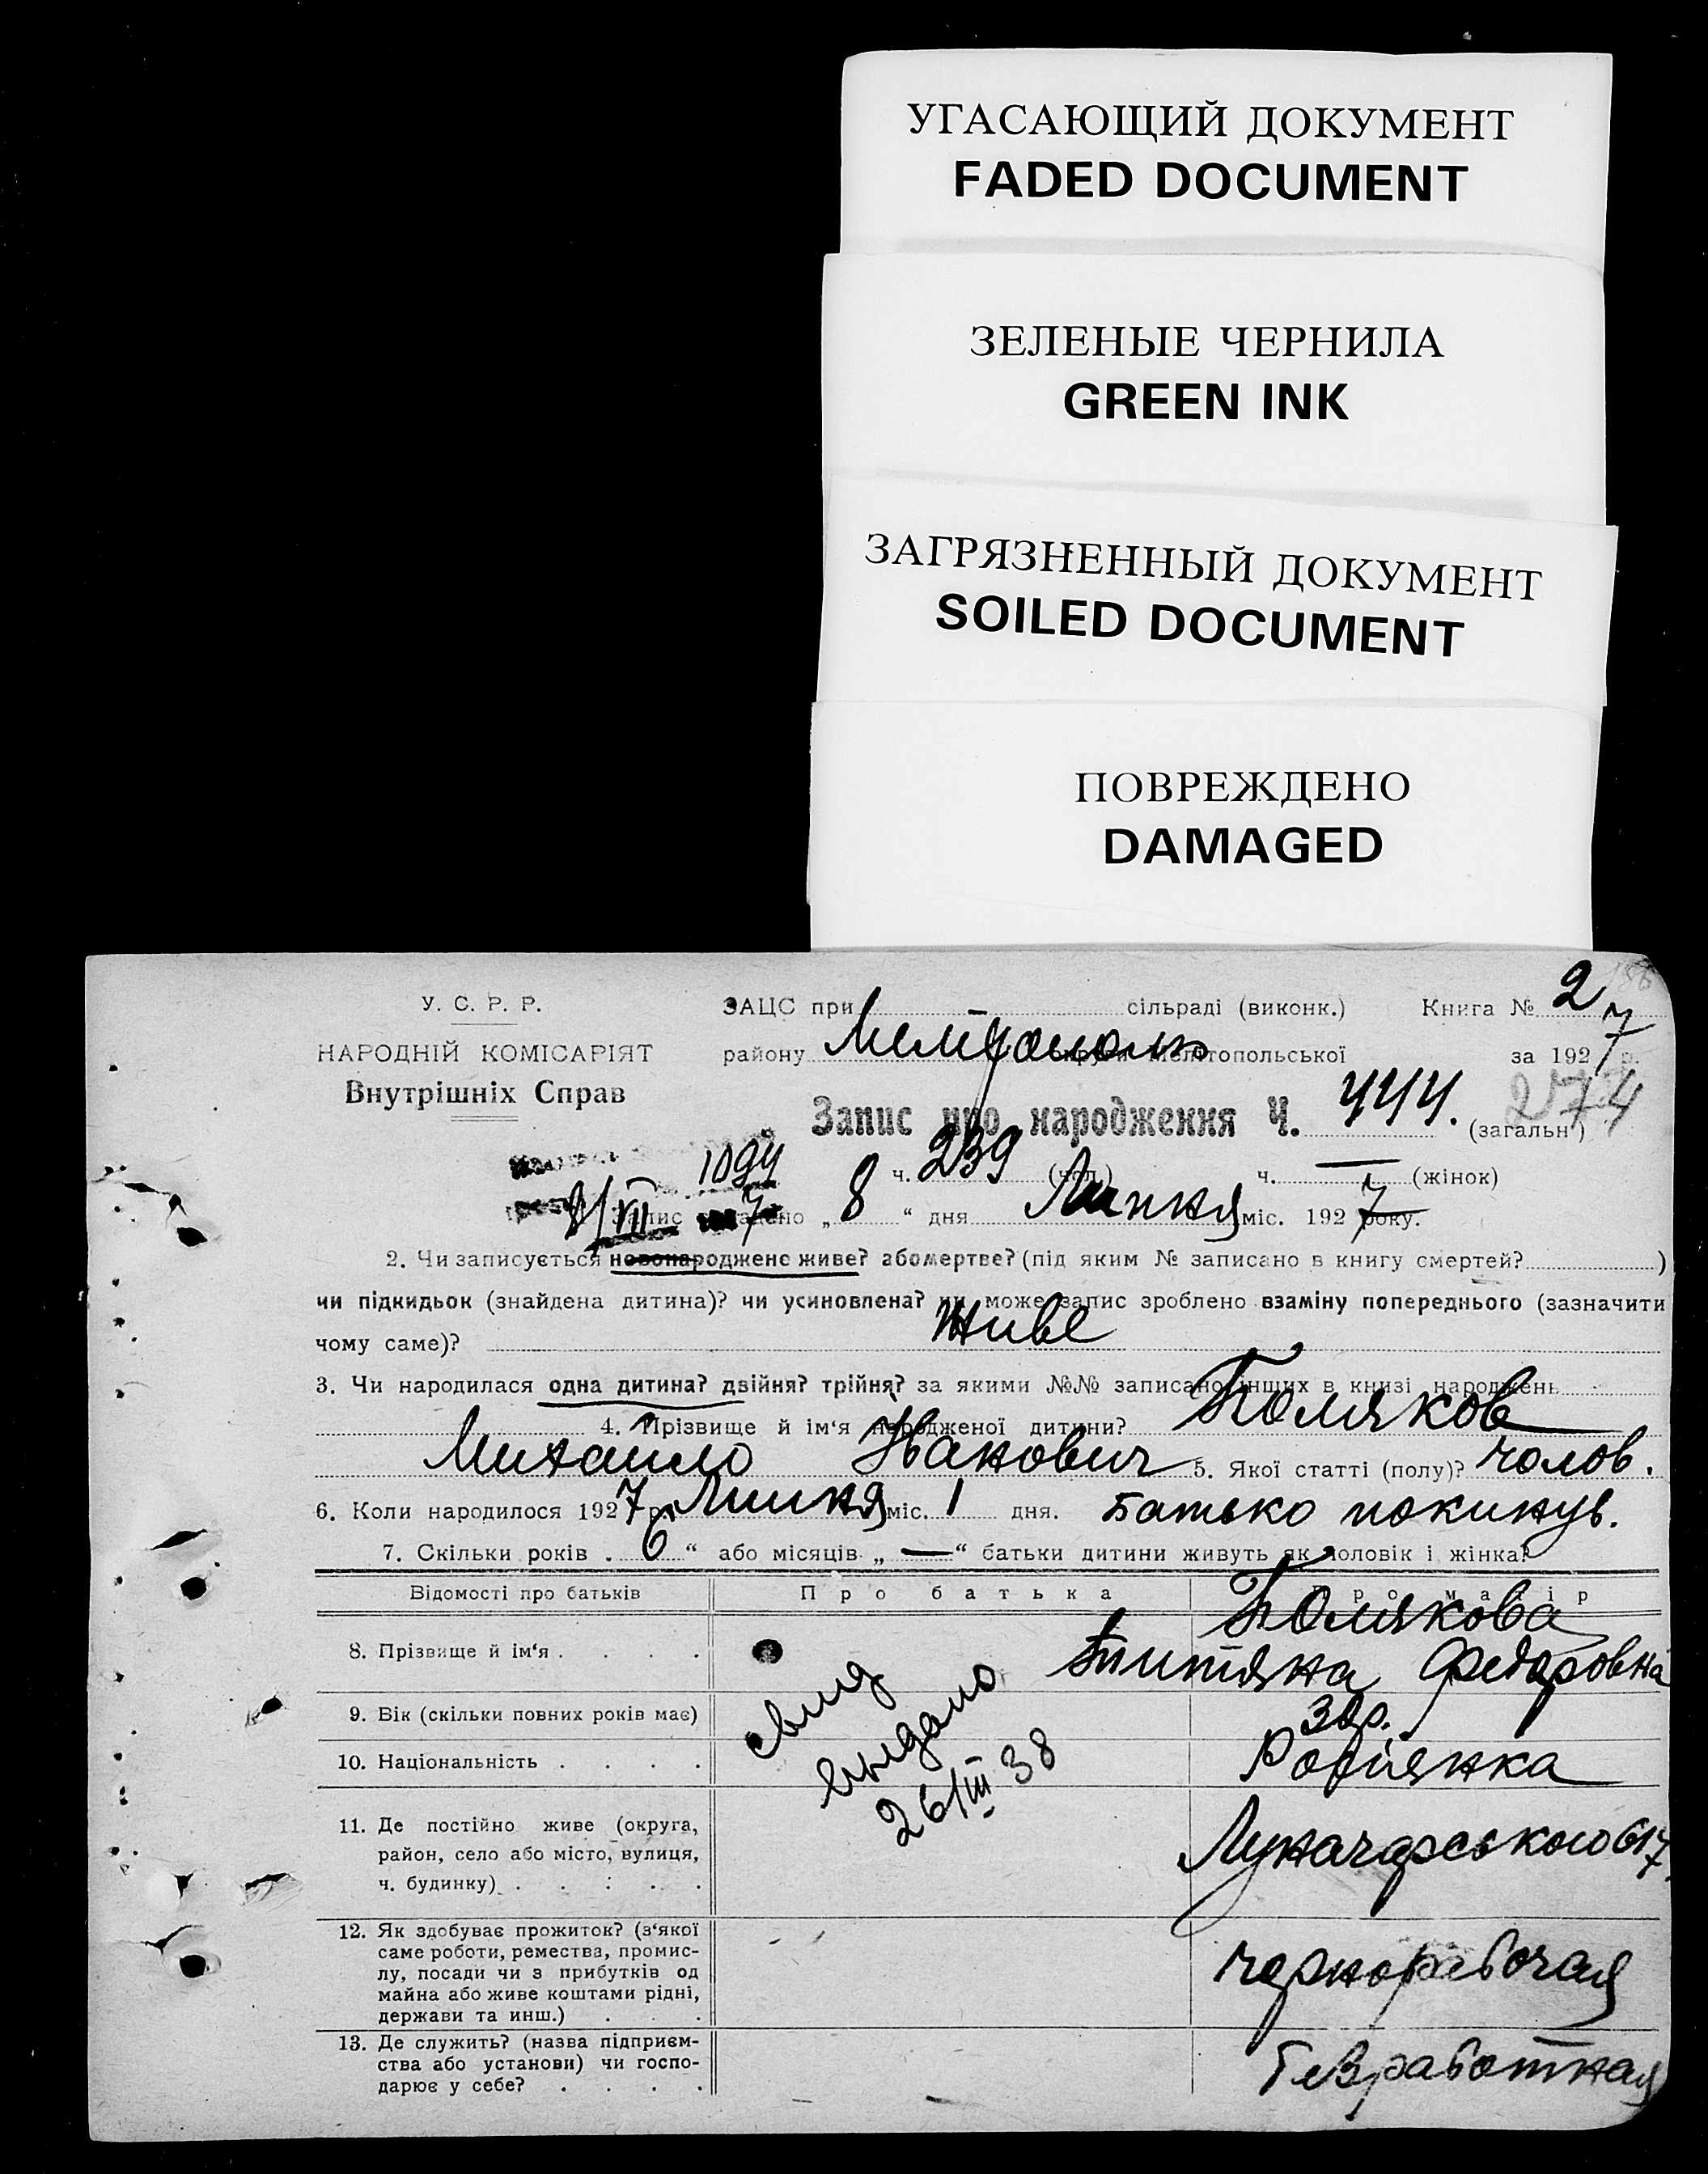 УГАСАЮЩИЙ ДОКУМЕНТ
FADED DOCUMENT
ЗЕЛЕНЫЕ ЧЕРНИЛА
GREEN INK
ЗАГРЯЗНЕННЫЙ ДОКУМЕНТ
SOILED DOCUMENT
ПОВРЕЖДЕНО
DAMAGED
У. С. Р. Р.
НАРОДНІЙ КОМІСАРІЯТ
Внутрішніх Справ
ЗАЦС при сільраді (виконк.) Книга № 2
району Мелітополь округи Мелітопольської за 1927 р.
Запис про народження Ч. 444. (загальн) 274
ч. 239 (чол.) ч. — (жінок)
1094
8/VII 7
Запис складено „8“ дня Липня міс. 1927 року.
2. Чи записується новонароджене живе? або мертве? (під яким № записано в книгу смертей? )
чи підкидьок (знайдена дитина)? чи усиновлена? чи може запис зроблено взаміну попереднього (зазначити
чому саме)? Живе
3. Чи народилася одна дитина? двійня? трійня? за якими №№ записано інших в книзі народжень
4. Прізвище й ім‘я народженої дитини? Поляков
Михаило Іванович 5. Якої статті (полу)? чолов.
6. Коли народилося 1927 р. Липня міс. 1 дня. Батько покинув.
7. Скільки років „6“ або місяців „—“ батьки дитини живуть як чоловік і жінка?
Відомості про батьків Про батька Про матір
8. Прізвище й ім‘я . . . . Полякова
Федоровна
9. Вік (скільки повних років має)
10. Національність . . . .
свид
выдано
26/III 38
11. Де постійно живе (округа,
район, село або місто, вулиця,
ч. будинку) . . . . . Луначарського 617
12. Як здобуває прожиток? (з‘якої
саме роботи, ремества, промис-
лу, посади чи з прибутків од
майна або живе коштами рідні,
держави та инш.) . . . чернорабочая
13. Де служить? (назва підприєм-
ства або установи) чи госпо-
дарює у себе? . . . . Безработная